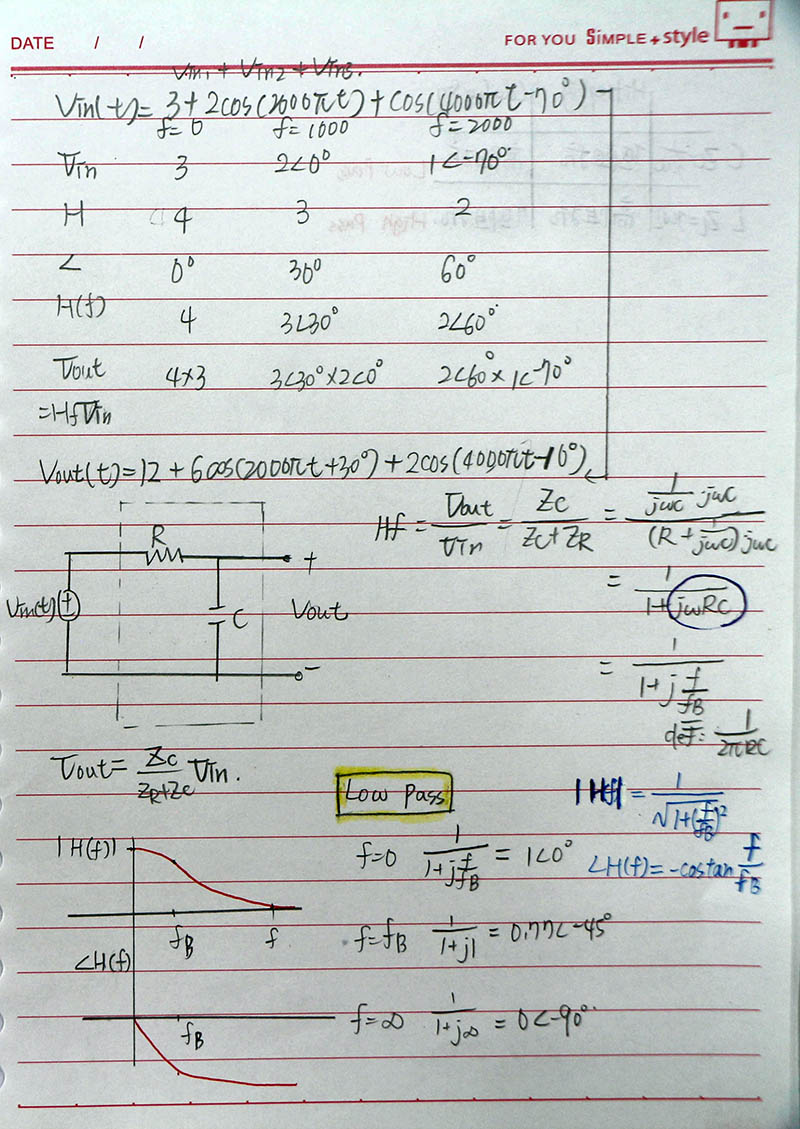 DATE / /
FOR YOU SiMPLE+style
Vin1 + Vin2 + Vin3.
Vin(t)= 3+2cos(2000πt)+cos(4000πt-70°)
f=0 f=1000 f=2000
Vin 3 2<0° 1<-70°
H 4 3 2
∠ 0° 30° 60°
H(f) 4 3<30° 2<60°
Vout 4×3 3<30°×2<0° 2<60°×1<-70°
=HfVin
Vout(t)=12+6cos(2000πt+30°)+2cos(4000πt-10°)
Hf = Vout/Vin = Zc/(Zc+ZR) = (1/jωc) jωc / (R+1/jωc) jωc
= 1/(1+jωRC)
= 1/(1+j f/fB)
def: 1/2πRC
R
Vin(t) + C Vout
+
-
Vout= Zc/(ZR+Zc) Vin.
Low Pass
|Hf| = 1/√(1+(f/fB)²)
∠H(f)=-costan f/fB
|H(f)|
fB f
f=0 1/(1+j f/fB) = 1<0°
f=fB 1/(1+j1) = 0.77<-45°
∠H(f)
fB
f=∞ 1/(1+j∞) = 0<-90°